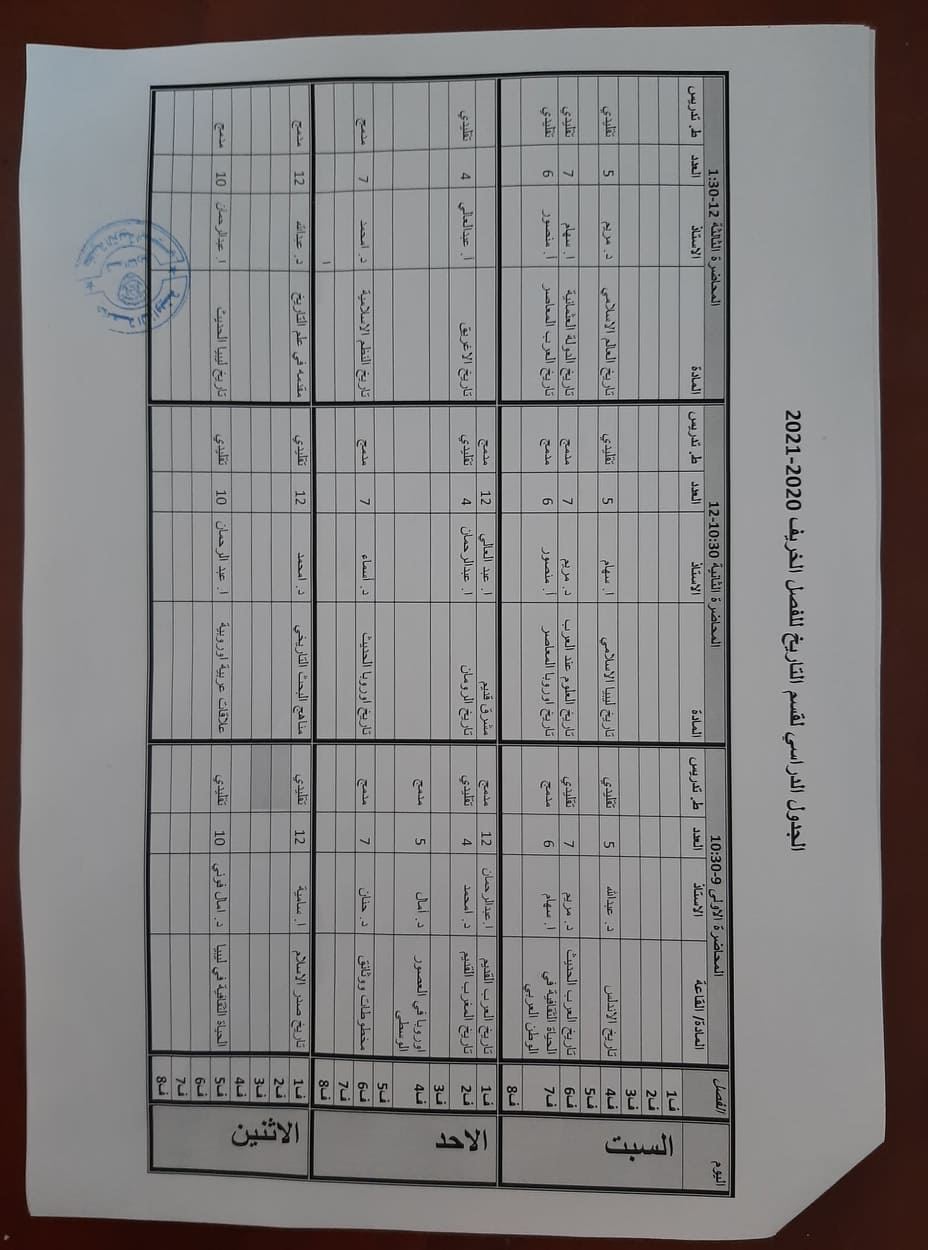 الجدول الدراسي لقسم التاريخ للفصل الخريف 2020-2021
اليوم الفصل المحاضرة الاولى 9-10:30 المحاضرة الثانية 10:30-12 المحاضرة الثالثة 12-1:30
المادة/ القاعة الاستاذ العدد ط. تدريس المادة الاستاذ العدد ط. تدريس المادة الاستاذ العدد ط. تدريس
السبت
ف1
ف2
ف3
ف4 تاريخ الاندلس د. عبدالله 5 تقليدي تاريخ ليبيا الاسلامي ا. سهام 5 تقليدي تاريخ العالم الاسلامي د. مريم 5 تقليدي
ف5
ف6 تاريخ العرب الحديث د. مريم 7 تقليدي تاريخ العلوم عند العرب د. مريم 7 مدمج تاريخ الدولة العثمانية ا. سهام 7 تقليدي
ف7 الحياة الثقافية في الوطن العربي ا. سهام 6 مدمج تاريخ اوروبا المعاصر أ. منصور 6 مدمج تاريخ العرب المعاصر أ. منصور 6 تقليدي
ف8
الاحد
ف1 تاريخ العرب القديم ا.عبدالرحمان 12 مدمج مشرق قديم ا. عبد العالي 12 مدمج
ف2 تاريخ المغرب القديم د. امحمد 4 تقليدي تاريخ الرومان ا. عبدالرحمان 4 تقليدي تاريخ الاغريق أ. عبدالعالي 4 تقليدي
ف3
ف4 اوروبا في العصور الوسطى د. أمال 5 مدمج
ف5
ف6 مخطوطات ووثائق د. حنان 7 مدمج تاريخ اوروبا الحديث د. اسماء 7 مدمج تاريخ النظم الاسلامية د. امحمد 7 مدمج
ف7
ف8 ا
الاثنين
ف1 تاريخ صدر الاسلام ا. سامية 12 تقليدي مناهج البحث التاريخي د. امحمد 12 تقليدي مقدمه في علم التاريخ د. عبدالله 12 مدمج
ف2
ف3
ف4
ف5 الحياة الثقافية في ليبيا د. امال فوني 10 تقليدي علاقات عربية اوروبية ا. عبد الرحمان 10 تقليدي تاريخ ليبيا الحديث ا. عبدالرحمان 10 مدمج
ف6
ف7
ف8